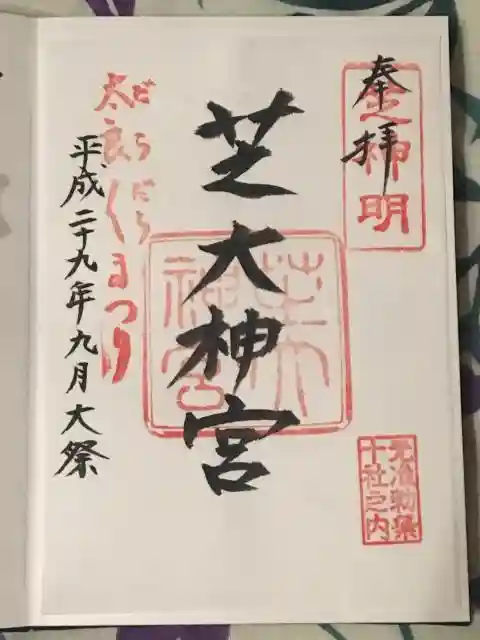 奉拝
芝神明
芝大神宮
芝神宮
元准勅祭
十社之内
だらだら
太良くまつり
平成二十九年九月大祭